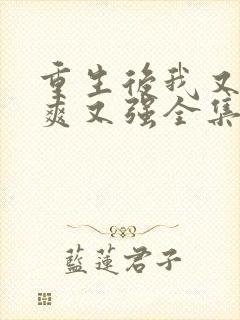 重生後我又
爽又强全集
藍蓮君子